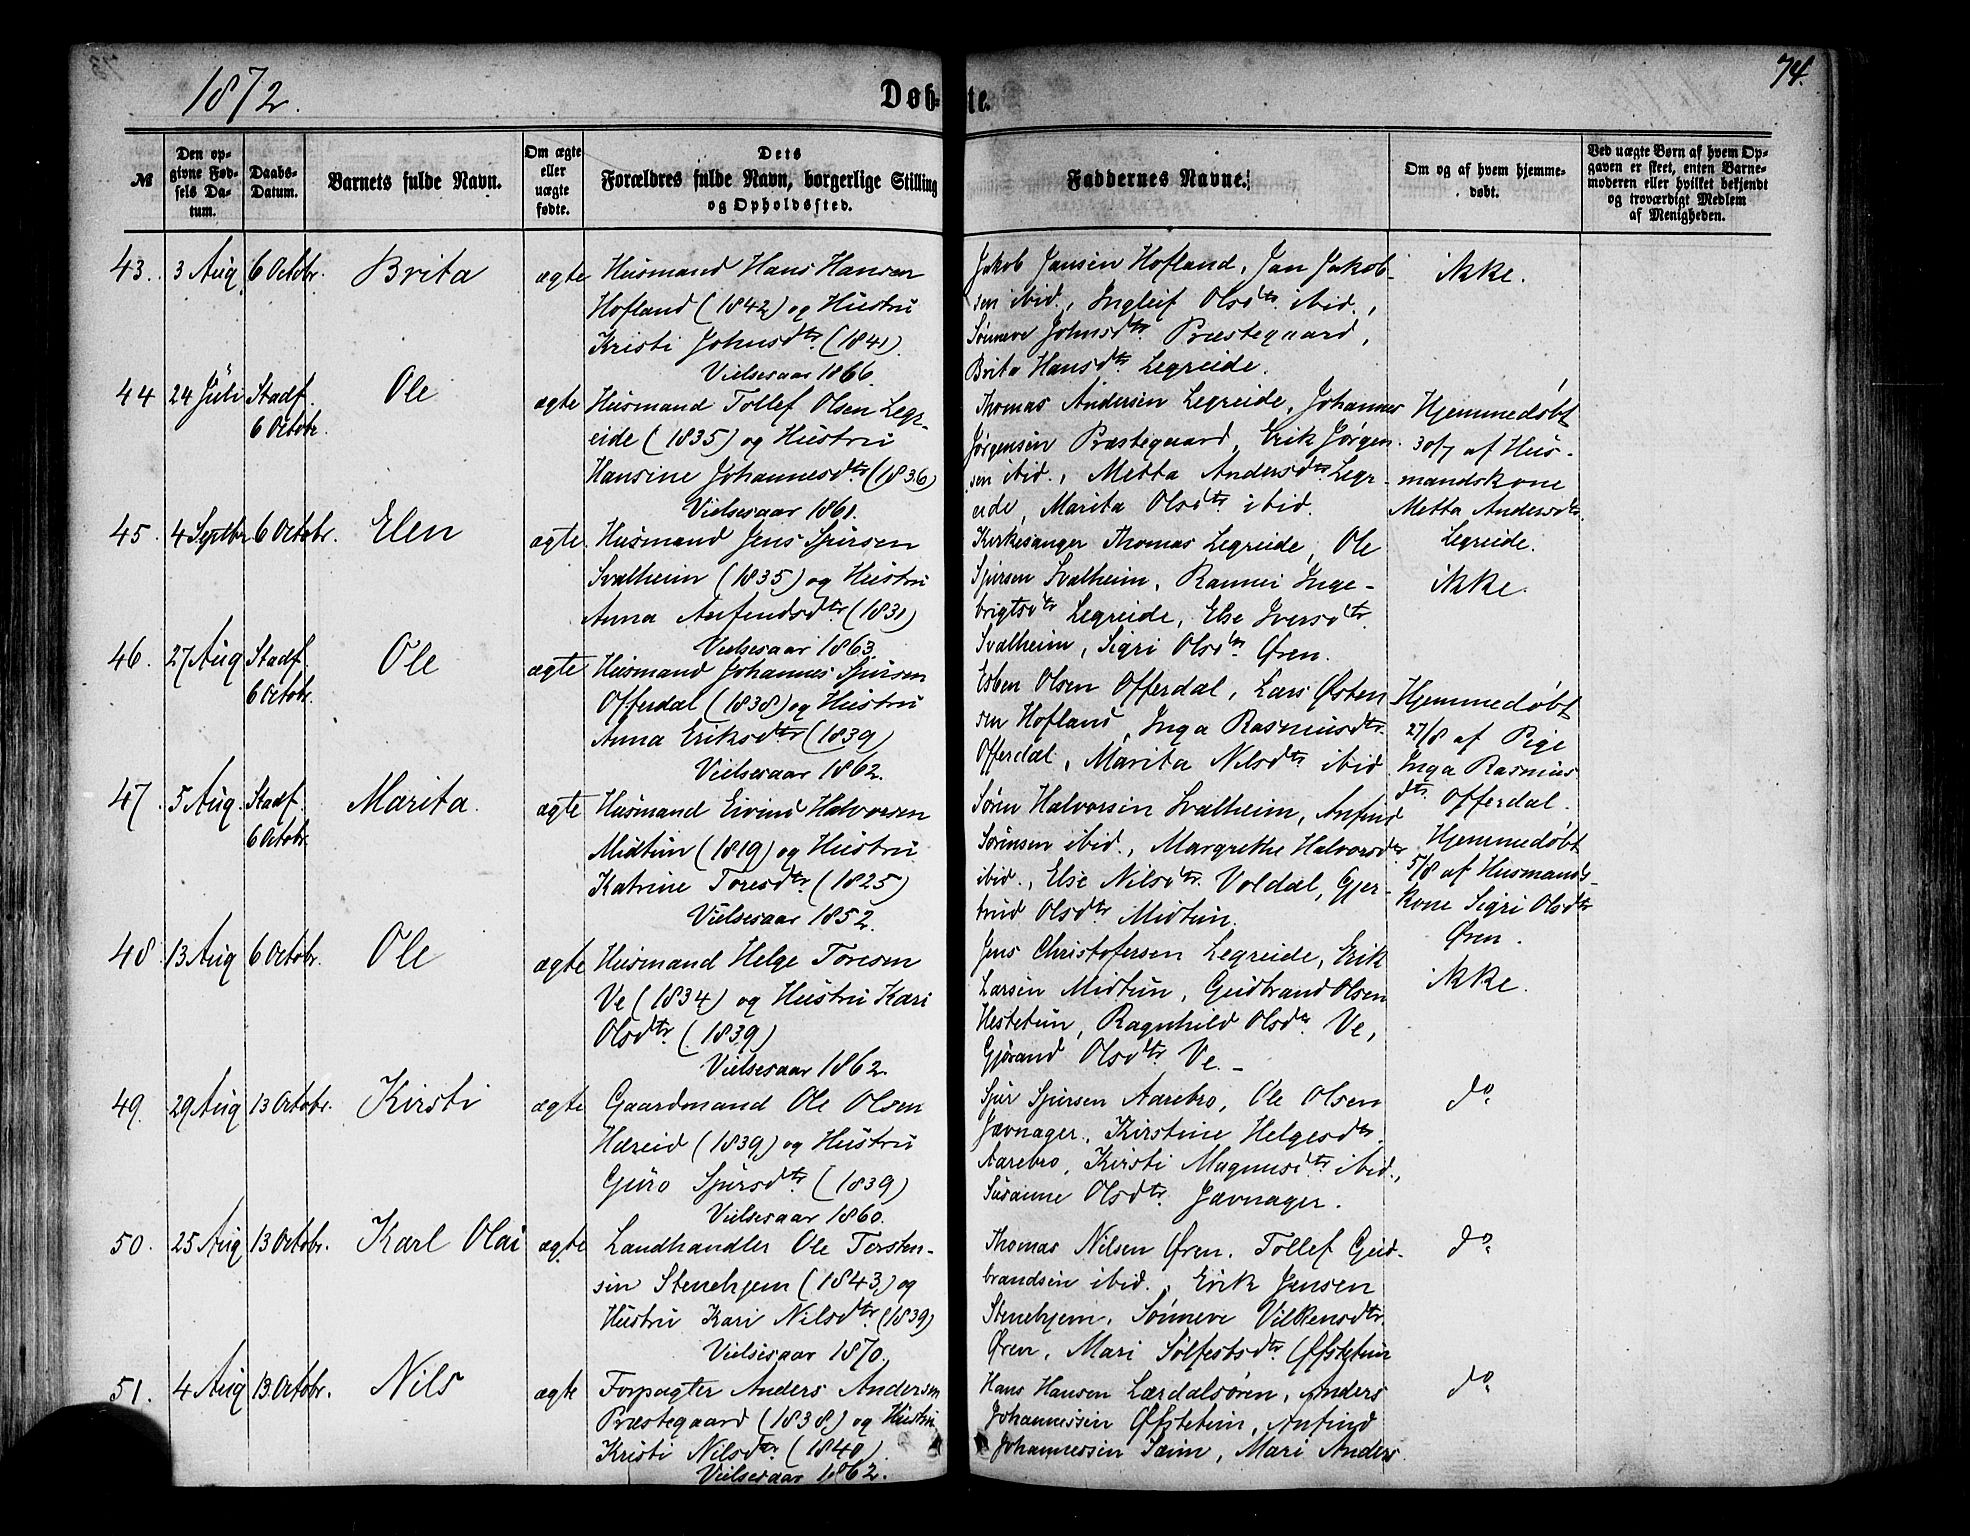 1872.
Døb-
te.
74.
№
Den op-
givne Fød-
sels Da-
tum.
Daabs-
Datum.
Barnets fulde Navn.
Om ægte
eller
uægte
fødte.
Dets
Forældres fulde Navn, borgerlige Stilling
og Opholdssted.
Faddernes Navne.
Om og af hvem hjemme-
døbt.
Ved uægte Børn af hvem Op-
gaven er skeet, enten Barne-
moderen eller hvilket bekjendt
og troværdigt Medlem
af Menigheden.
43. 3 Aug 6 Octobr. Brita ægte
Husmand Hans Hansen
Hofland (1842) og Hustru
Kristi Johnsdtr. (1841).
Vielsesaar 1866.
Jakob Jansen Hofland, Jan Jakob-
sen ibid., Ingleif Olsdtr. ibid.,
Sønneve Johnsdtr. Præstegaard,
Brita Hansdtr. Legreide.
ikke.
44 24 Juli Stadf. 6 Octobr. Ole ægte
Husmand Tollef Olsen Legr-
eide (1835) og Hustru
Hansine Johannesdtr. (1836)
Vielsesaar 1861.
Thomas Andersen Legreide, Johannes
Jørgensen Præstegaard, Erik Jørgen-
sen ibid., Metta Andersdtr. Legr-
eide, Marita Olsdtr. ibid.
Hjemmedøbt
30/7 af Hus-
mandskone
Metta Andersdtr.
Legreide.
45. 4 Septbr 6 Octobr. Elen ægte.
Husmand Jens Sjursen
Svalheim (1835) og Hustru
Anna Anfindsdtr. (1831)
Vielsesaar 1863.
Kirkesanger Thomas Legreide, Ole
Sjursen Svalheim, Rannei Inge-
brigtsdtr. Legreide, Else Iversdtr.
Svalheim, Sigri Olsdtr. Øren.
ikke.
46. 27 Aug Stadf. 6 Octobr. Ole ægte
Husmand Johannes Sjursen
Offerdal (1838) og Hustru
Anna Eriksdtr. (1839)
Vielsesaar 1862.
Esben Olsen Offerdal, Lars Østen
sen Hofland, Inga Rasmusdtr.
Offerdal, Marita Nilsdtr. ibid
Hjemmedøbt
27/8 af Pige
Inga Rasmus
dtr. Offerdal.
47. 5 Aug. Stadf. 6 Octobr. Marita. ægte
Husmand Eivind Halvorsen
Midtun (1819) og Hustru
Katrine Toresdtr. (1825)
Vielsesaar 1852.
Søren Halvorsen Svalheim, Anfind
Sørensen ibid., Margrethe Halvorsdtr.
ibid., Else Nilsdtr. Voldal, Gjer-
trud Olsdtr. Midtun.
Hjemmedøbt
5/8 af Husmands-
kone Sigri Olsdtr
Øren.
48. 13 Aug 6 Octobr. Ole ægte
Husmand Helge Toresen
Ve (1834) og Hustru Kari
Olsdtr. (1839)
Vielsesaar 1862.
Jens Christofersen Legreide, Erik
Larsen Midtun, Guidbrand Olsen
Hestetun, Ragnhild Olsdr. Ve,
Gjørand Olsdtr. Ve. -
ikke.
49. 29 Aug 13 Octobr. Kirsti ægte
Gaardmand Ole Olsen
Hæreid (1839) og Hustru
Guro Sjursdtr. (1839)
Vielsesaar 1860.
Sjur Sjursen Aarebro, Ole Olsen
Jævnager, Kirstine Helgesdtr.
Aarebro, Kirsti Magnusdtr. ibid.,
Susanne Olsdtr. Jævnager.
do.
50. 25 Aug 13 Octobr. Karl Olai ægte
Landhandler Ole Torsten-
sen Stenehjem (1843) og
Hustru Kari Nilsdtr. (1839)
Vielsesaar 1870.
Thomas Nilsen Øren. Tollef Guid-
brandsen ibid., Erik Jensen
Stenehjem, Sønneve Vilkensdtr.
Øren, Mari Sølfestsdtr. Øfstetun
do.
51. 4 Aug 13. Octobr. Nils ægte
Forpagter Anders Andersen
Præstegaard (1838) og Hustru
Kristi Nilsdtr. (1840).
Vielsesaar 1862.
Hans Hansen Lærdalsøren, Anders
Johannessen Øfstetun, Anfind
Johannessen Tæim, Mari Anders
do.